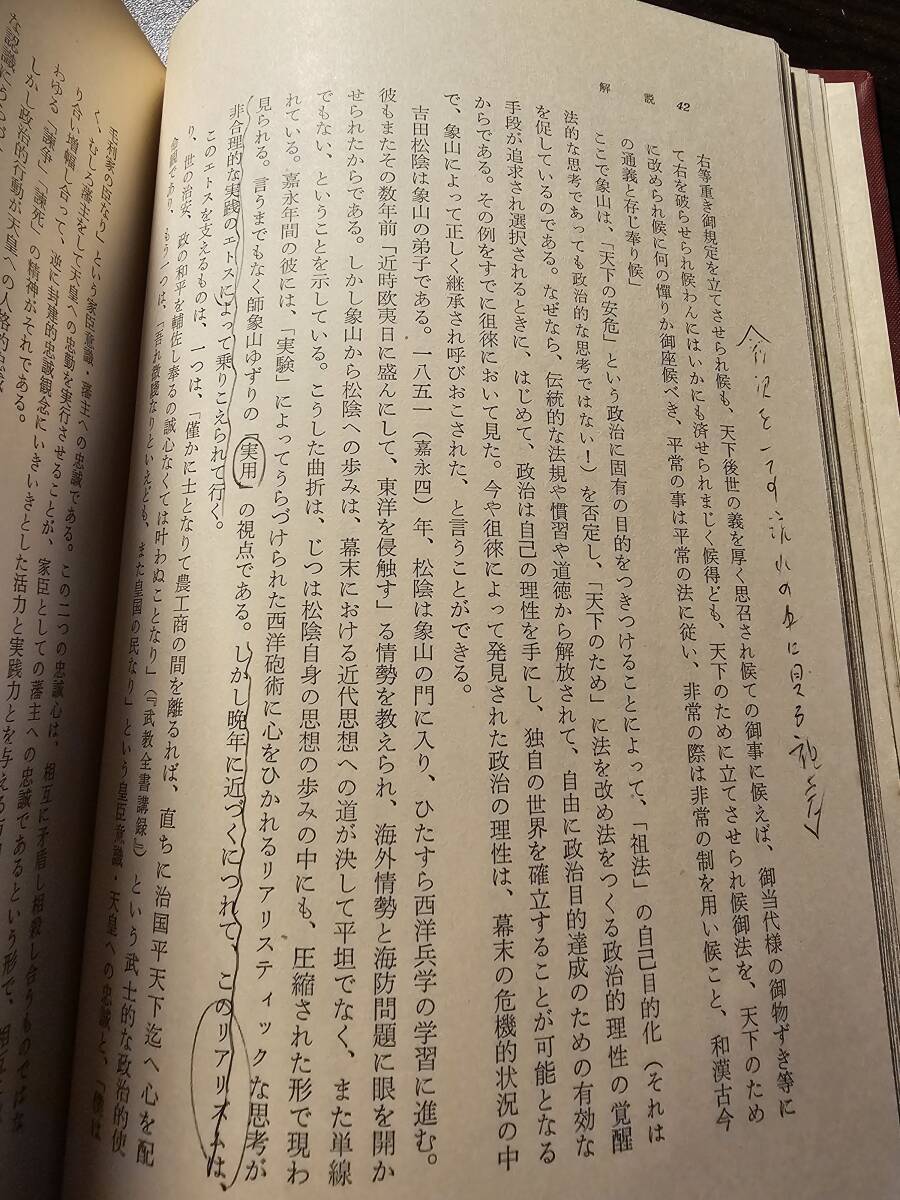 解説
42
右等重き御規定を立てさせられ候も、天下後世の義を厚く思召され候ての御事に候えば、御当代様の御物ずき等に
て右を破らせられ候わんにはいかにも済せられまじく候得ども、天下のために立てさせられ候御法を、天下のため
に改められ候に何の憚りか御座候べき、平常の事は平常の法に従い、非常の際は非常の制を用い候こと、和漢古今
の通義と存じ奉り候」
ここで象山は、「天下の安危」という政治に固有の目的をつきつけることによって、「祖法」の自己目的化（それは
法的な思考であっても政治的な思考ではない！）を否定し、「天下のため」に法を改め法をつくる政治的理性の覚醒
を促しているのである。なぜなら、伝統的な法規や慣習や道徳から解放されて、自由に政治目的達成のための有効な
手段が追求され選択されるときに、はじめて、政治は自己の理性を手にし、独自の世界を確立することが可能となる
からである。その例をすでに徂徠において見た。今や徂徠によって発見された政治の理性は、幕末の危機的状況の中
で、象山によって正しく継承され呼びおこされた、と言うことができる。
吉田松陰は象山の弟子である。一八五一（嘉永四）年、松陰は象山の門に入り、ひたすら西洋兵学の学習に進む。
彼もまたその数年前「近時欧夷日に盛んにして、東洋を侵触す」る情勢を教えられ、海外情勢と海防問題に眼を開か
せられたからである。しかし象山から松陰への歩みは、幕末における近代思想への道が決して平坦でなく、また単線
でもない、ということを示している。こうした曲折は、じつは松陰自身の思想の歩みの中にも、圧縮された形で現わ
れている。嘉永年間の彼には、「実験」によってうらづけられた西洋砲術に心をひかれるリアリスティックな思考が
見られる。言うまでもなく師象山ゆずりの「実用」の視点である。しかし晩年に近づくにつれて、このリアリズムは、
非合理的な実践のエトスによって乗りこえられて行く。
このエトスを支えるものは、一つは、「僅かに士となりて農工商の間を離るれば、直ちに治国平天下迄へ心を配
り、世の治安、政の和平を輔佐し奉るの誠心なくては叶わぬことなり」（『武教全書講録』）という武士的な政治的使
命観であり、もう一つは、「吾れ微賤なりといえども、また皇国の民なり」という皇臣意識・天皇への忠誠と、「僕は
毛利家の臣なり」という家臣意識・藩主への忠誠である。この二つの忠誠心は、相互に矛盾し相殺し合うものではな
く、むしろ藩主をして天皇への忠勤を実行させることが、家臣としての藩主への忠誠であるという形で、相互に
り合い増幅し合って、逆に封建的忠誠観念にいきいきとした活力と実践力とを与える
わゆる「諫争」「諫死」の精神がそれである。
しかし政治的行動が天皇への人格的忠誠
な認識にうらづ